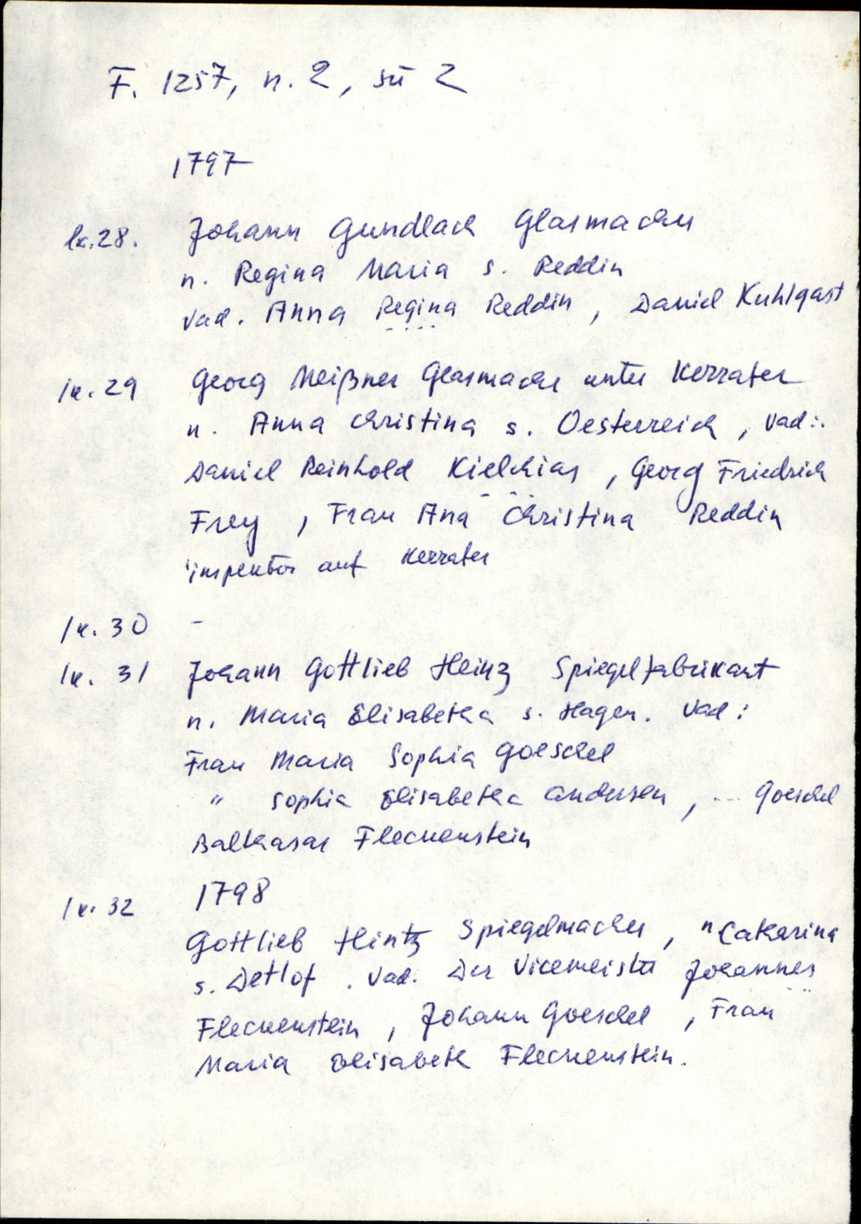 F. 1257, n. 2, sü 2
1797
lk. 28. Johann Gundlach Glasmacher
n. Regina Maria s. Reddin
vad. Anna Regina Reddin, Daniel Kuhlgast
lk. 29 Georg Meißner Glasmacher unter Kerrafer
n. Anna Christina s. Oesterreich, vad:.
Daniel Reinhold Kielchias, Georg Friedrich
Frey, Frau Ana Christina Reddin
auf Kerrafer
lk. 30 -
lk. 31 Johann Gottlieb Heinz Spiegelfabrikant
n. Maria Elisabetha s. Hagen. vad:
Frau Maria Sophia Goeschel
" Sophia Elisabetha Andersen, ... Goeschel
Balthasar Fleckenstein
lk. 32 1798
Gottlieb Hintz Spiegelmacher, n Catharina
s. Detlof. vad. Der Vicemeister Johannes
Fleckenstein, Johann Goeschel, Frau
Maria Elisabeth Fleckenstein.